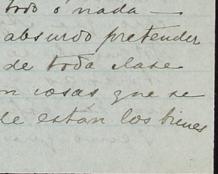 todo ó nada —
absurdo pretender
de toda clase
n cosas que se
de están los bienes